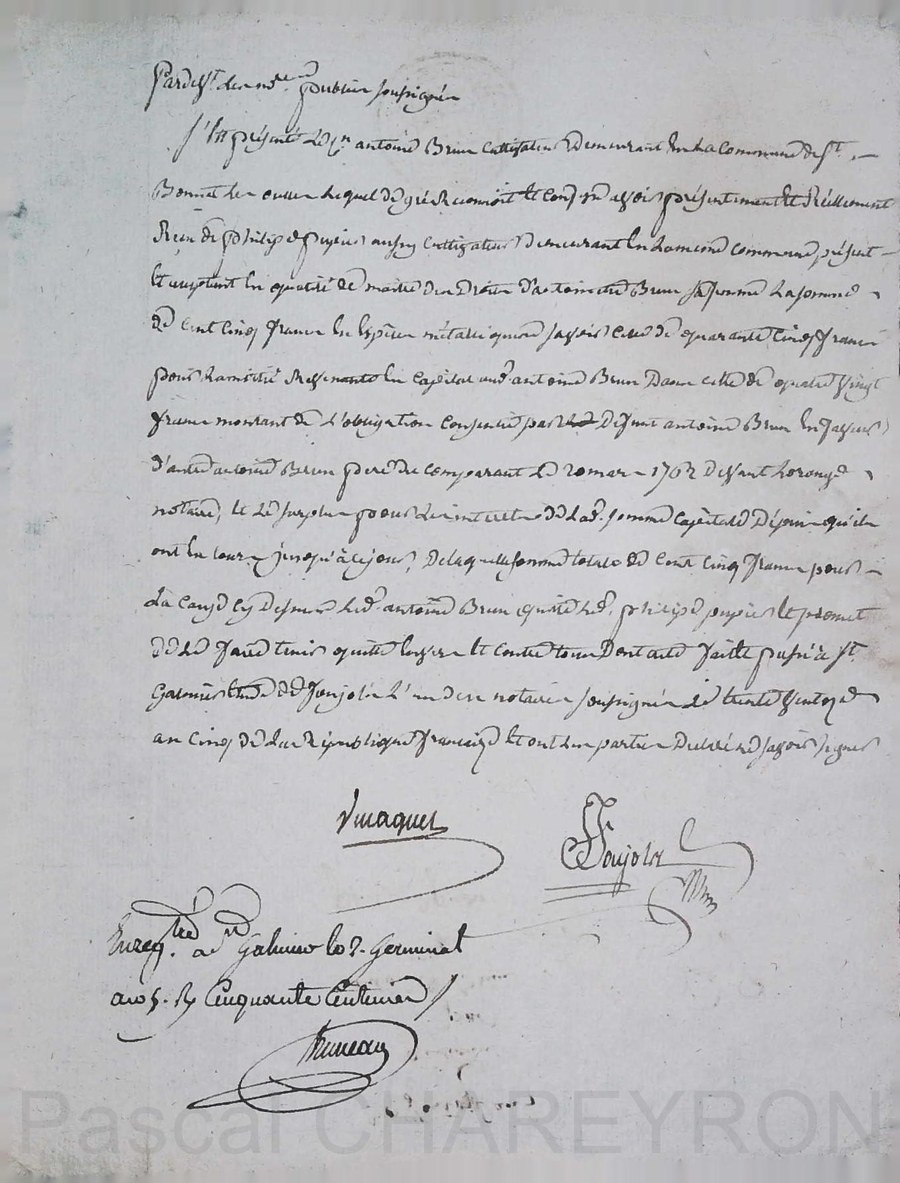 Pardevt. les nres. publics soussignés
s'est présenté le cn. antoine Brun cultivateur demeurant en la Commune de st.
Bonnet les oules lequel de gré Reconnoit et Confesse avoir présentement et Réellement
Reçu de philipe pupier aussy cultivateur demeurant en la meme commune présent
et acceptant en qualité de maitre des Droits d'antoinette Brun sa femme la somme
de Cent Cinq francs en espèces métalliques savoir celle de quarante cinq francs
pour la moitié Revenante en Capital aud. antoine Brun dans celle de quatre vingt
francs montant de l'obligation consentie par Defunt antoine Brun en faveur
d'autre antoine Brun pere du comparant le 20 mars 1762 devant
notaire, et le surplus pour les interets de lad. somme Capitale depuis qu'ils
ont en cours jusqu'à ce jour, de laquelle somme totale de Cent Cinq francs pour
la cause cy dessus led. antoine Brun quitte led. philipe pupier et promet
de le faire tenir quitte envers et contre tous Dont acte fait et passé à st.
Galmier Etude de Soujols l'un des notaires soussignés le trente ventoze
an Cinq de la République française et ont les parties déclaré ne savoir signer
Soujols
Enregtré. a st Galmier le 2. Germinal
an 5. R Cinquante Centimes
Bruneau
Pascal CHAREYRON